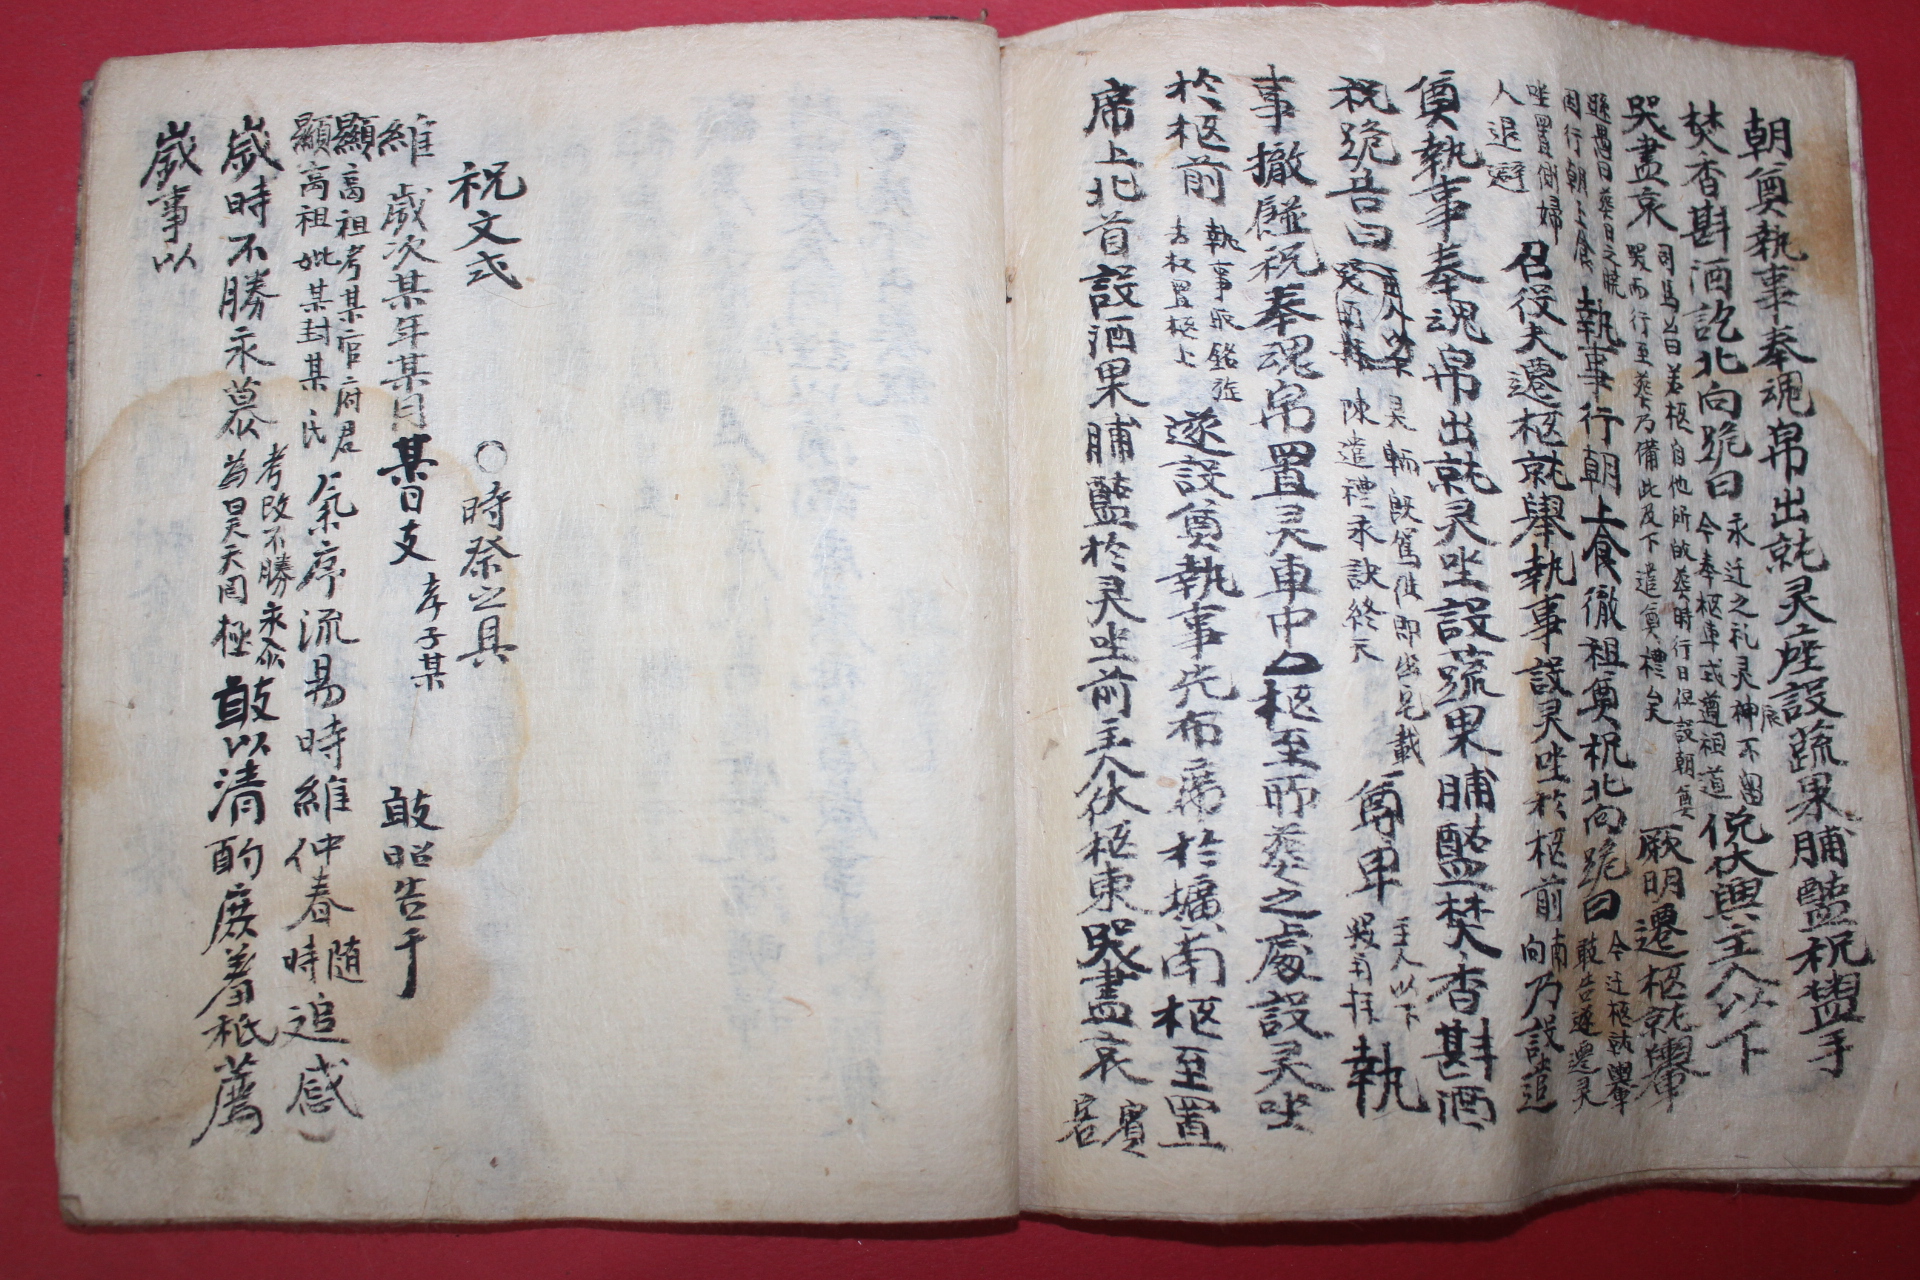 朝奠執事奉魂帛出就灵座設蔬果脯醢祝盥手
焚香斟酒訖北向跪曰永迁之礼灵神不留今奉柩車式遵祖道俛伏興主人以下
哭盡哀司馬公曰若柩自他所故葬時行日但設朝奠哭而行至葬乃備此及下遣奠禮矣厥明遷柩就轝
執事行朝上食徹祖奠祝北向跪曰今迁柩就轝敢告遂遷灵
坐置傍婦人退避召役夫遷柩就轝執事設灵坐於柩前南向乃設遣
奠執事奉魂帛出就灵坐設蔬果脯醢焚香斟酒
祝跪告曰灵輀既駕徃即幽宅載陳遣禮永訣終天奠畢主人以下哭再拜執
事撤遂祝奉魂帛置灵車中柩至所葬之處設灵坐
於柩前執事取銘旌去杠置柩上遂設奠執事先布席於壙南柩至置
席上北首設酒果脯醢於灵坐前主人伏柩東哭盡哀賓客
祝文式 ○時祭之具
維歲次某年某月某日支孝子某 敢昭告于
顯高祖考某官府君
顯高祖妣某封某氏 氣序流易時維仲春隨時追感
歲時不勝永慕考改不勝永慕為昊天罔極敢以清酌庶羞祗薦
歲事以